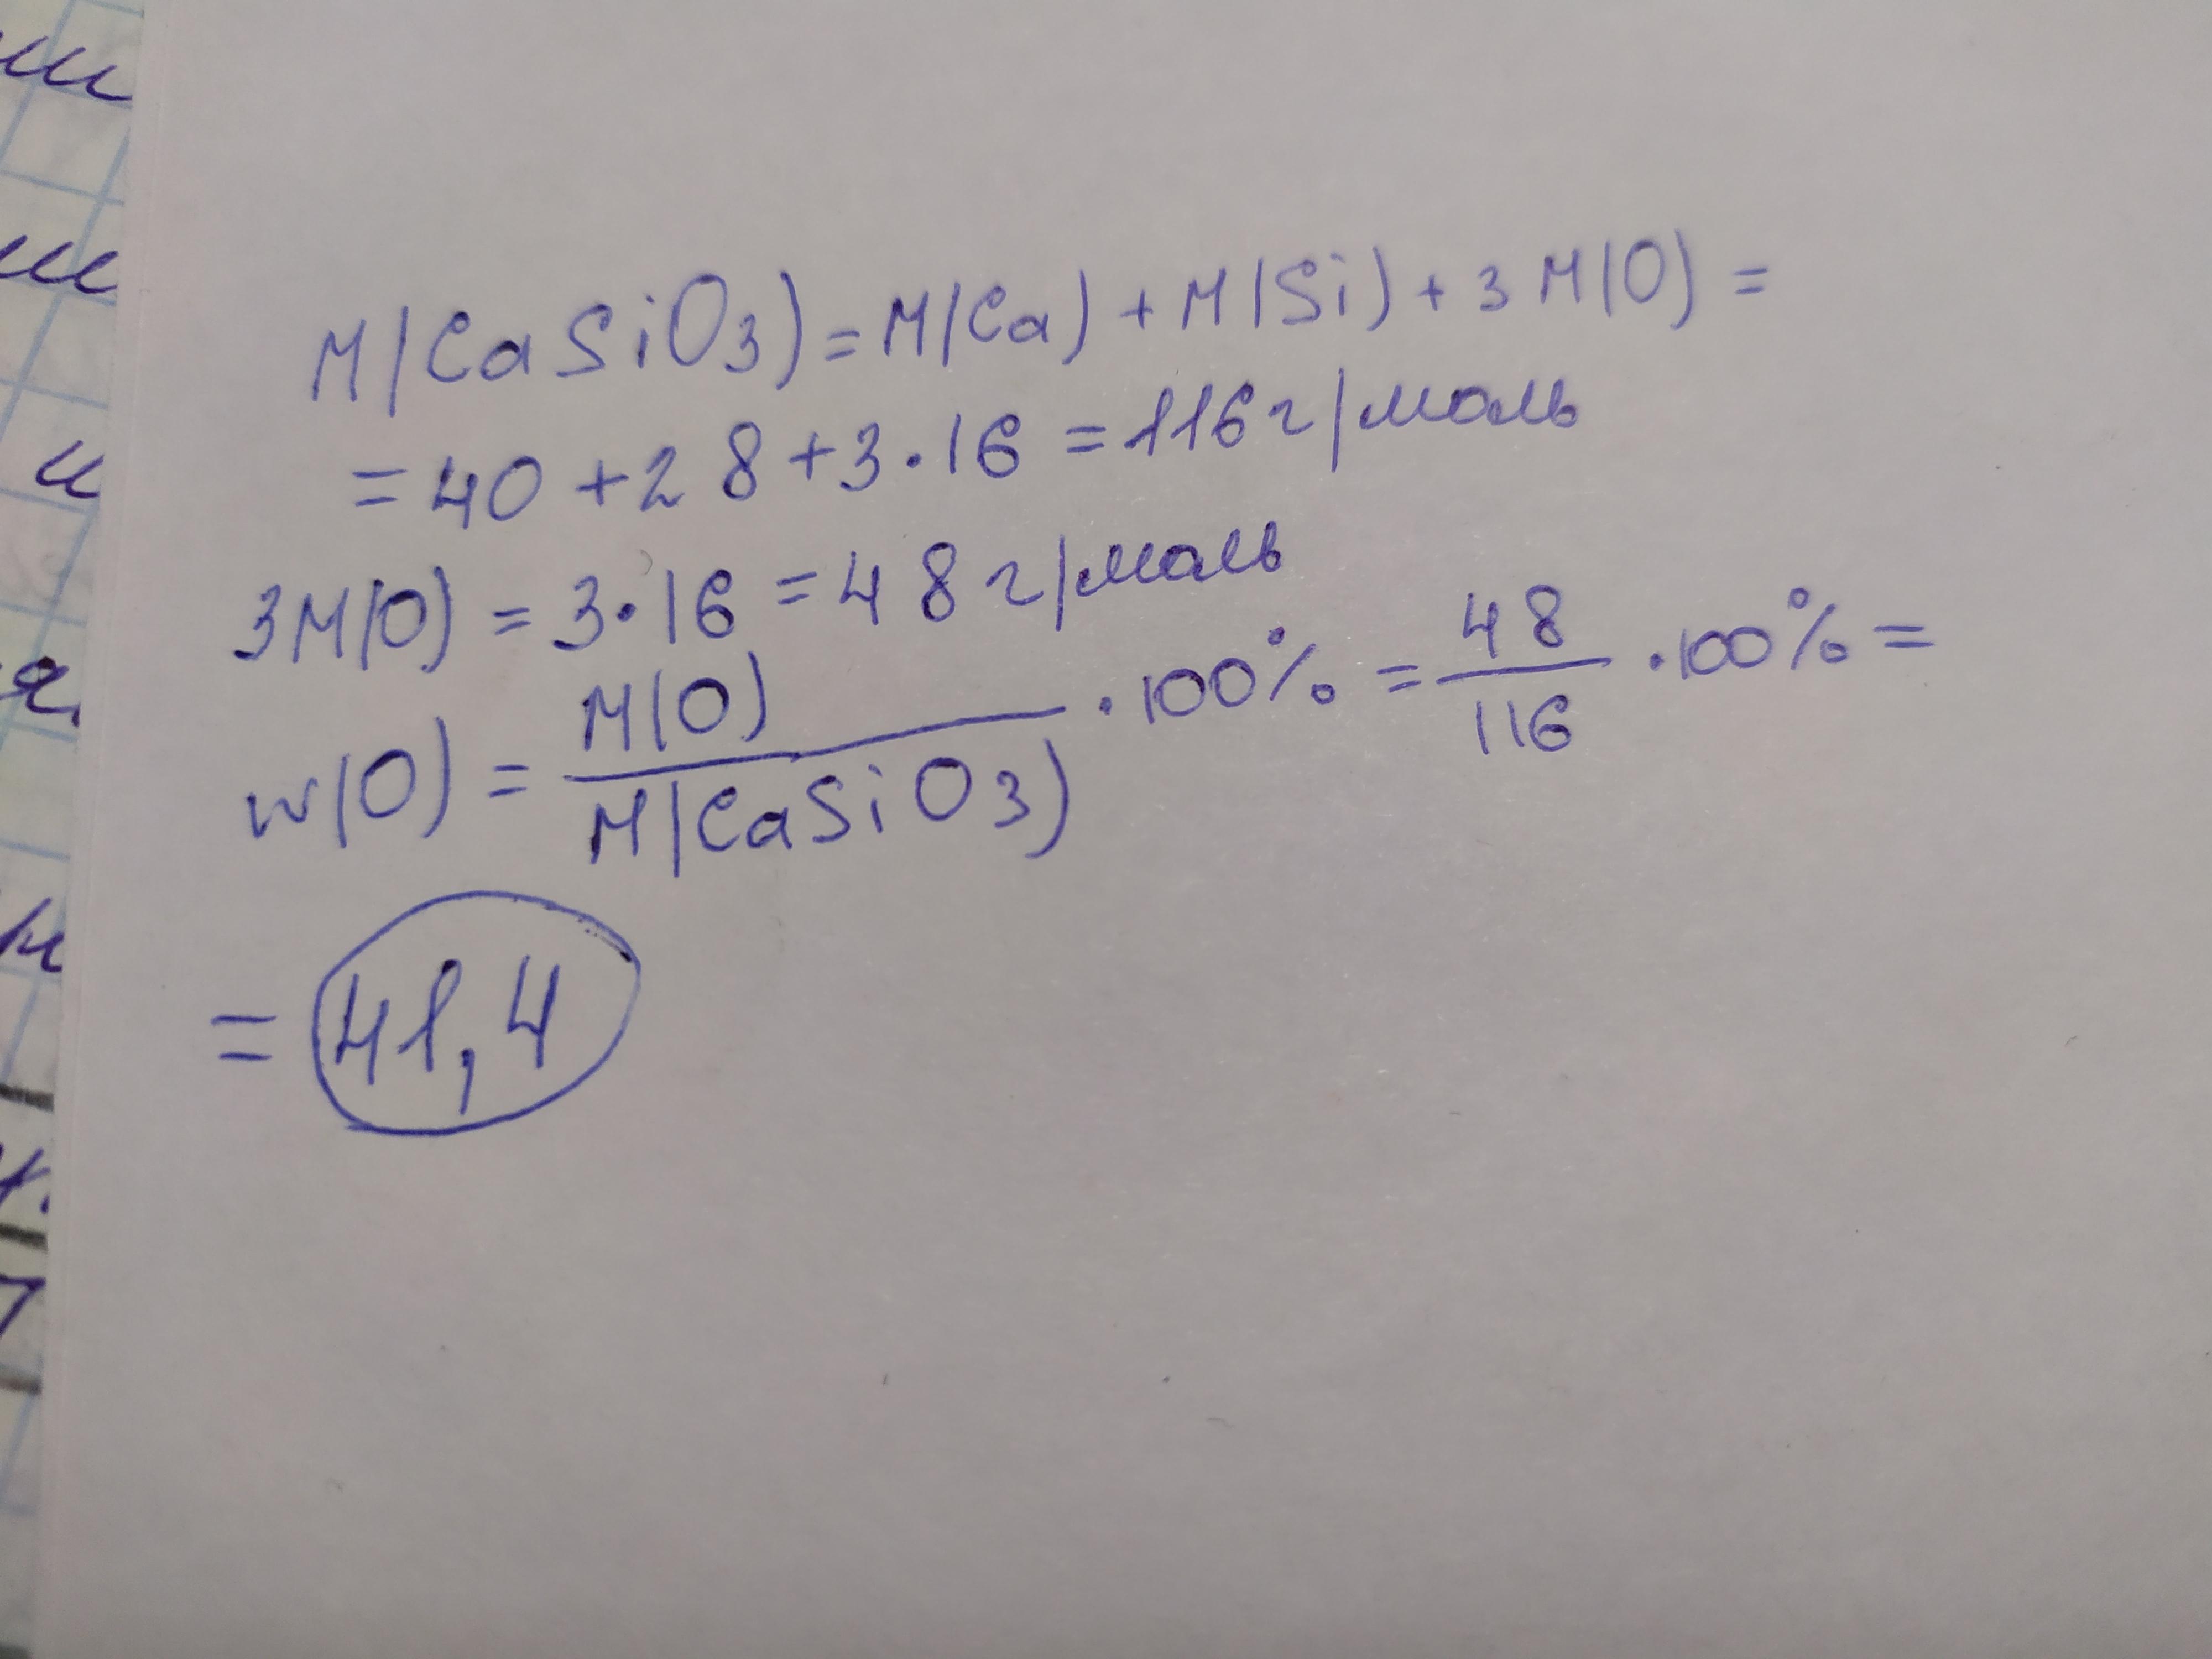 M(CaSiO3) = M(Ca) + M(Si) + 3M(O) =
= 40 + 28 + 3·16 = 116 г/моль
3M(O) = 3·16 = 48 г/моль
w(O) = M(O) / M(CaSiO3) ·100% = 48 / 116 ·100% =
= 41,4